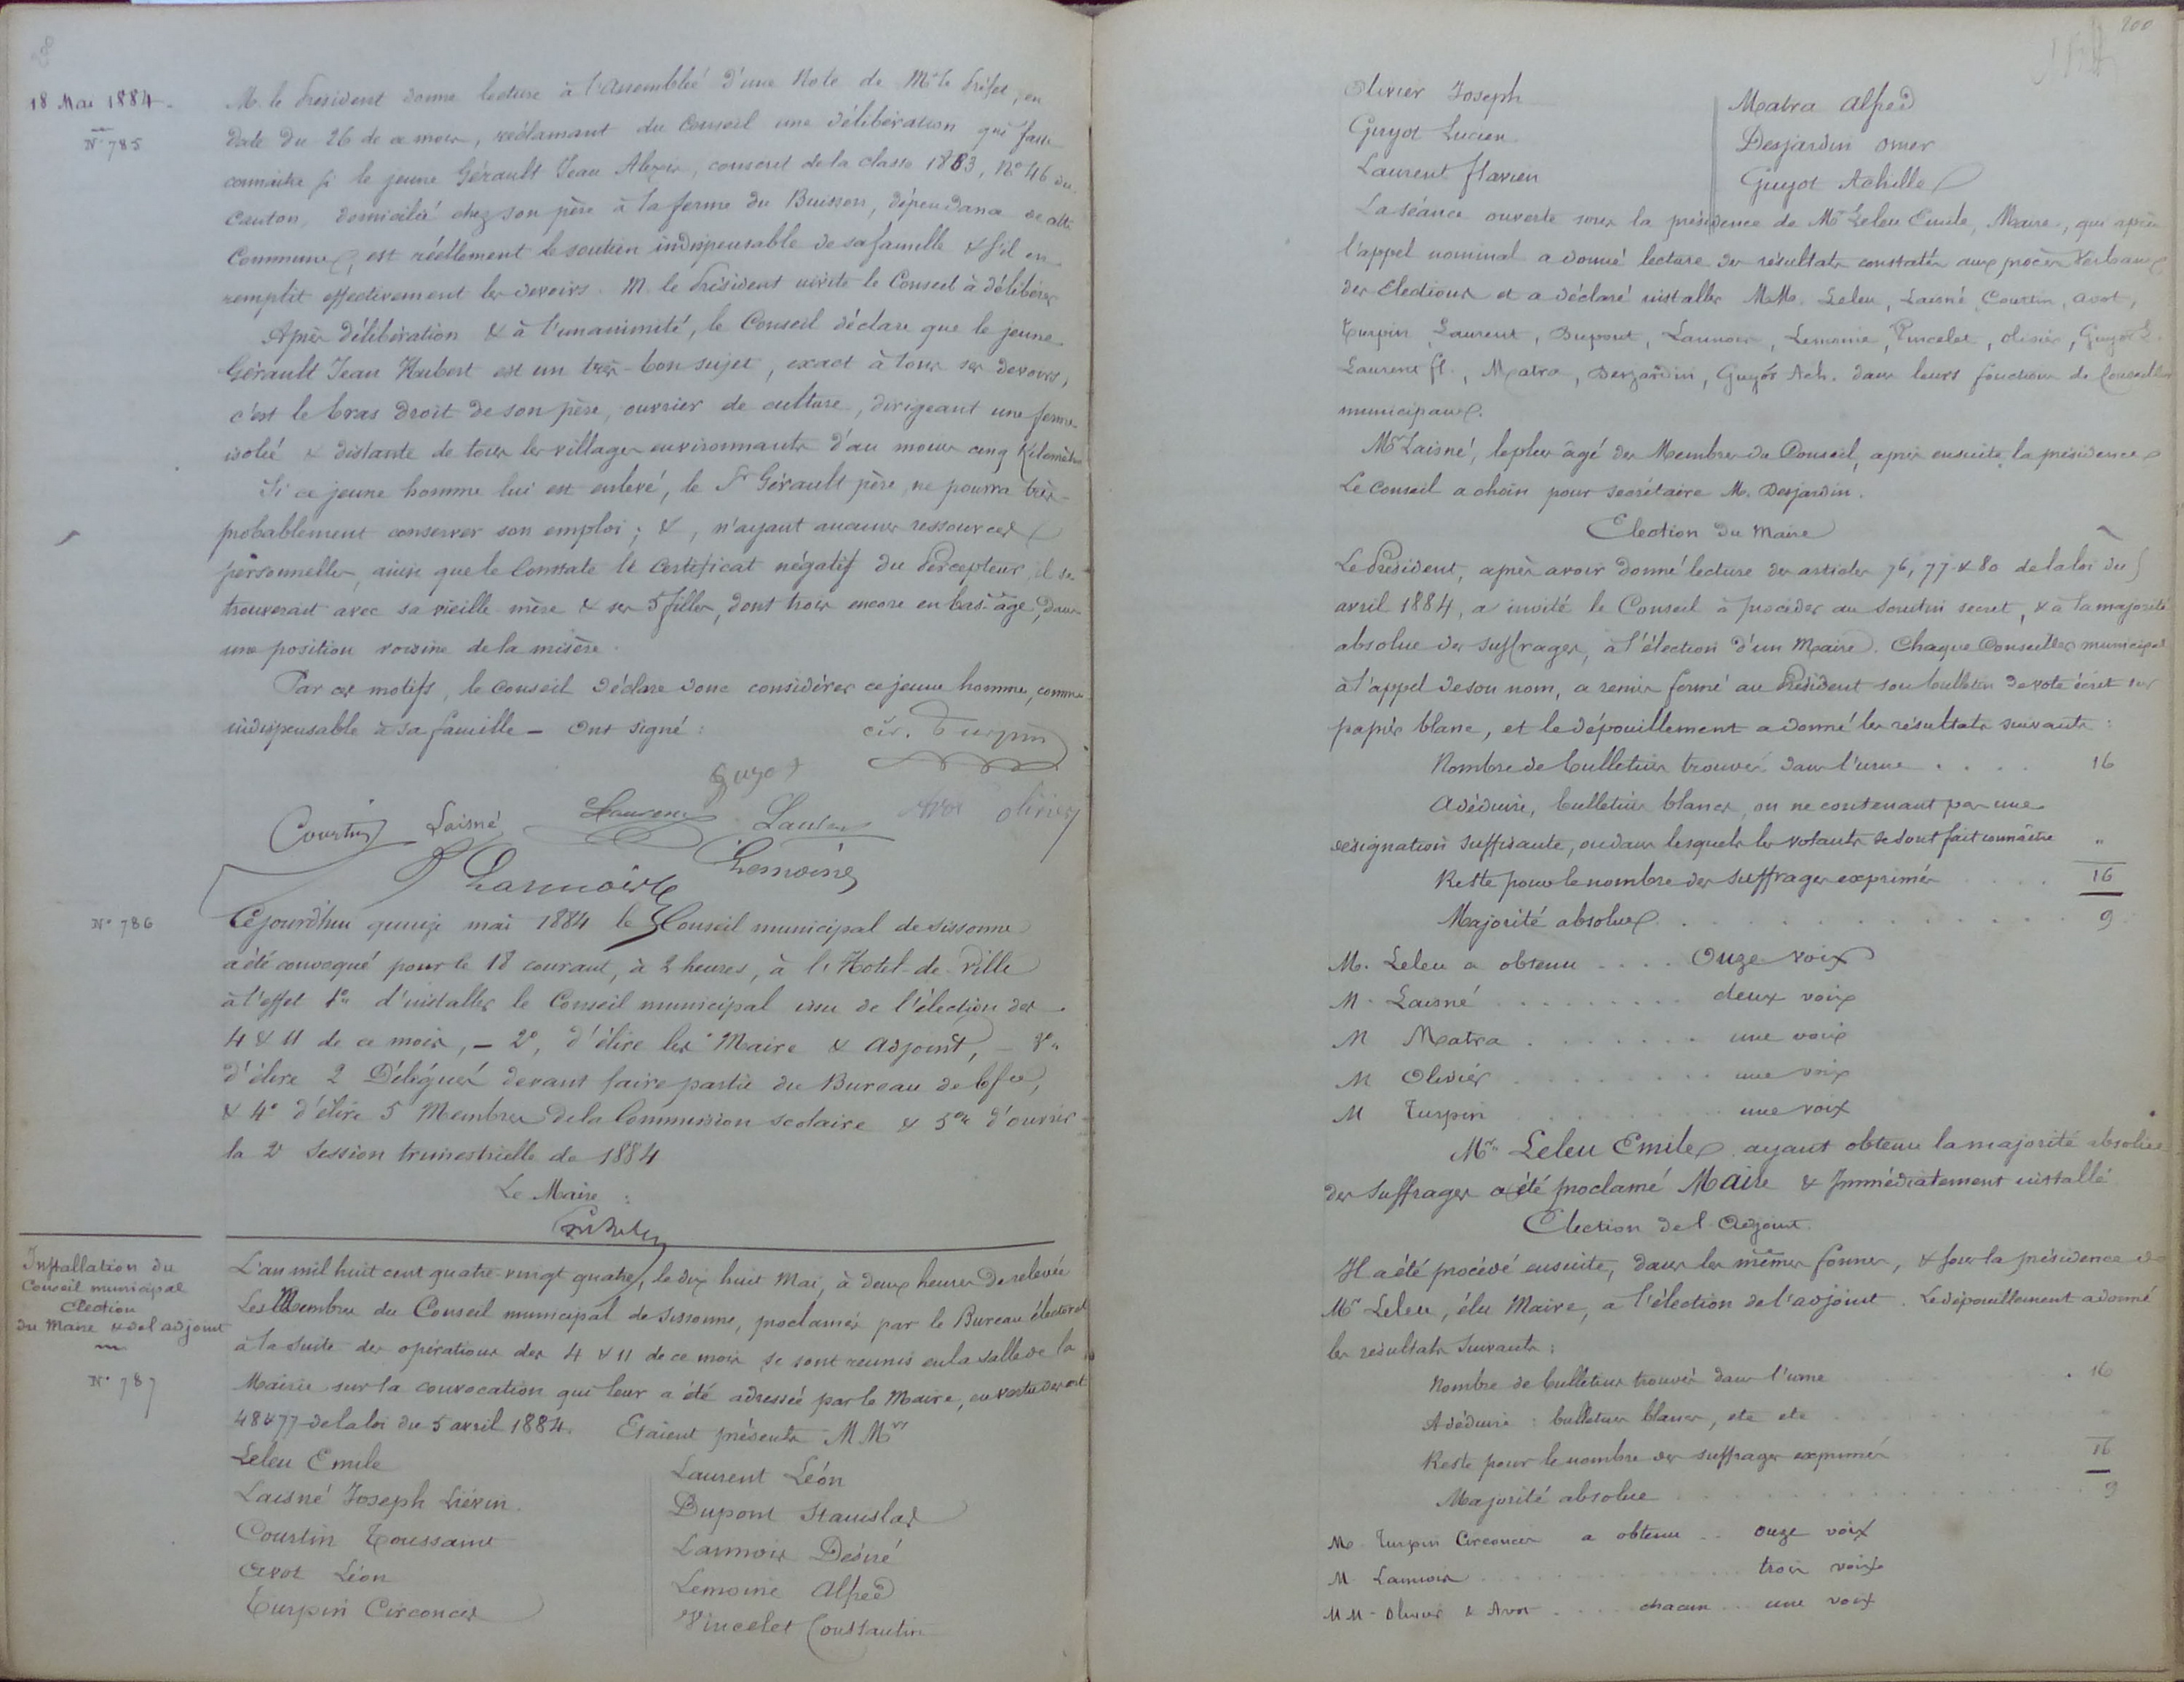 18 Mai 1884.
N° 785
M. le Président donne lecture à l'assemblée d'une Note de Mr le Préfet, en
date du 26 de ce mois, réclamant du Conseil une délibération qui fasse
connaître si le jeune Gérault Jean Alexis, conscrit de la classe 1883, N° 46 du
Canton, domicilié chez son père à la ferme du Buisson, dépendance de cette
Commune, est réellement le soutien indispensable de sa famille & s'il en
remplit effectivement les devoirs. M. le Président invite le Conseil à délibérer
Après délibération & à l'unanimité, le Conseil déclare que le jeune
Gérault Jean Hubert est un très-bon sujet, exact à tous ses devoirs,
c'est le bras droit de son père, ouvrier de culture, dirigeant une ferme
isolée & distante de tous les villages environnants d'au moins cinq Kilomètres
Si ce jeune homme lui est enlevé, le Sr Gérault père, ne pourra très-
probablement conserver son emploi; &, n'ayant aucunes ressources
personnelles, ainsi que le Constate le Certificat négatif du Percepteur, il se
trouverait avec sa vieille mère & ses 5 filles, dont trois encore en bas-âge, dans
une position voisine de la misère.
Par ces motifs, le Conseil déclare donc considérer ce jeune homme, comme
indispensable à sa famille — Ont signé :
cir. Turpin
Guyot
Courtin Laisné Laurent Laurent Avot Olivier
Lannois Lemoine
N° 786
Cejourd'hui quinze mai 1884 le Conseil municipal de Sissonne
a été convoqué pour le 18 courant, à 2 heures, à l'Hotel-de-Ville
à l'effet 1° d'installer le Conseil municipal issu de l'élection des
4 & 11 de ce mois, — 2°, d'élire les Maire & Adjoint, — 3°
d'élire 2 Délégués devant faire partie du Bureau de bfce,
& 4° d'élire 5 Membres de la Commission scolaire & 5° d'ouvrir
la 2e Session trimestrielle de 1884
Le Maire :
Installation du
Conseil municipal
Election
du Maire & de l'adjoint
N° 787
L'an mil huit cent quatre-vingt quatre, le dix huit Mai, à deux heures de relevée
Les Membres du Conseil municipal de Sissonne, proclamés par le Bureau électoral
à la suite des opérations des 4 & 11 de ce mois se sont réunis en la salle de la
Mairie sur la convocation qui leur a été adressée par le Maire, en vertu des art
48 & 77 de la loi du 5 avril 1884. Etaient présents MMrs
Leleu Emile
Laisné Joseph Liévin.
Courtin Toussaint
Avot Léon
Turpin Circoncis
Laurent Léon
Dupont Stanislas
Lannois Désiré
Lemoine Alfred
Vincelet Constantin
200
Olivier Joseph
Guyot Lucien.
Laurent flavien
Matra Alfred
Desjardin Omer
Guyot Achille
La séance ouverte sous la présidence de Mr Leleu Emile, Maire, qui après
l'appel nominal a donné lecture des résultats constatés aux procès Verbaux
des Elections et a déclaré installer MM. Leleu, Laisné, Courtin, Avot,
Turpin, Laurent, Dupont, Lannois, Lemoine, Vincelet, Olivier, Guyot L.
Laurent fl., Matra, Desjardin, Guyot Ach. dans leurs fonctions de Conseillers
municipaux.
Mr Laisné, le plus âgé des Membres du Conseil, a pris ensuite la présidence
Le Conseil a choisi pour secrétaire M. Desjardin.
Election du Maire
Le Président, après avoir donné lecture des articles 76, 77 & 80 de la loi du 5
avril 1884, a invité le Conseil à procéder au Scrutin secret, & à la majorité
absolue des suffrages, à l'élection d'un Maire. Chaque Conseiller municipal
à l'appel de son nom, a remis fermé au Président son bulletin de vote écrit sur
papier blanc, et le dépouillement a donné les résultats suivants :
Nombre de bulletins trouvés dans l'urne . . . . 16
A déduire, bulletins blancs, ou ne contenant pas une
désignation suffisante, ou dans lesquels les votants se sont fait connaître "
Reste pour le nombre des suffrages exprimés . . . . 16
Majorité absolue . . . . . . . . . . 9
M. Leleu a obtenu . . . . Onze voix
M. Laisné . . . . . . . . deux voix
M Matra . . . . . . . une voix
M Olivier . . . . . . . . une voix
M Turpin . . . . . . . . une voix
Mr Leleu Emile ayant obtenu la majorité absolue
des Suffrages a été proclamé Maire & Immédiatement installé.
Election de l'Adjoint.
Il a été procédé ensuite, dans les mêmes formes, & sous la présidence de
Mr Leleu, élu Maire, à l'élection de l'adjoint. Le dépouillement a donné
les résultats Suivants :
Nombre de bulletins trouvés dans l'urne . 16
A déduire : bulletins blancs, etc etc "
Reste pour le nombre des suffrages exprimés 16
Majorité absolue . . . . . . . . . . 9
M. Turpin Circoncis a obtenu . . onze voix
M Lannois . . . . . . . . trois voix
MM. Olivier & Avot . . . . chacun . . . une voix